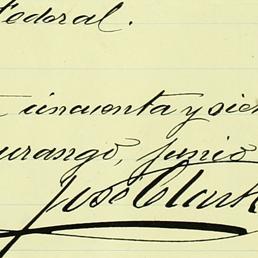 federal.
cincuenta y sie
urango, junio
José Clark